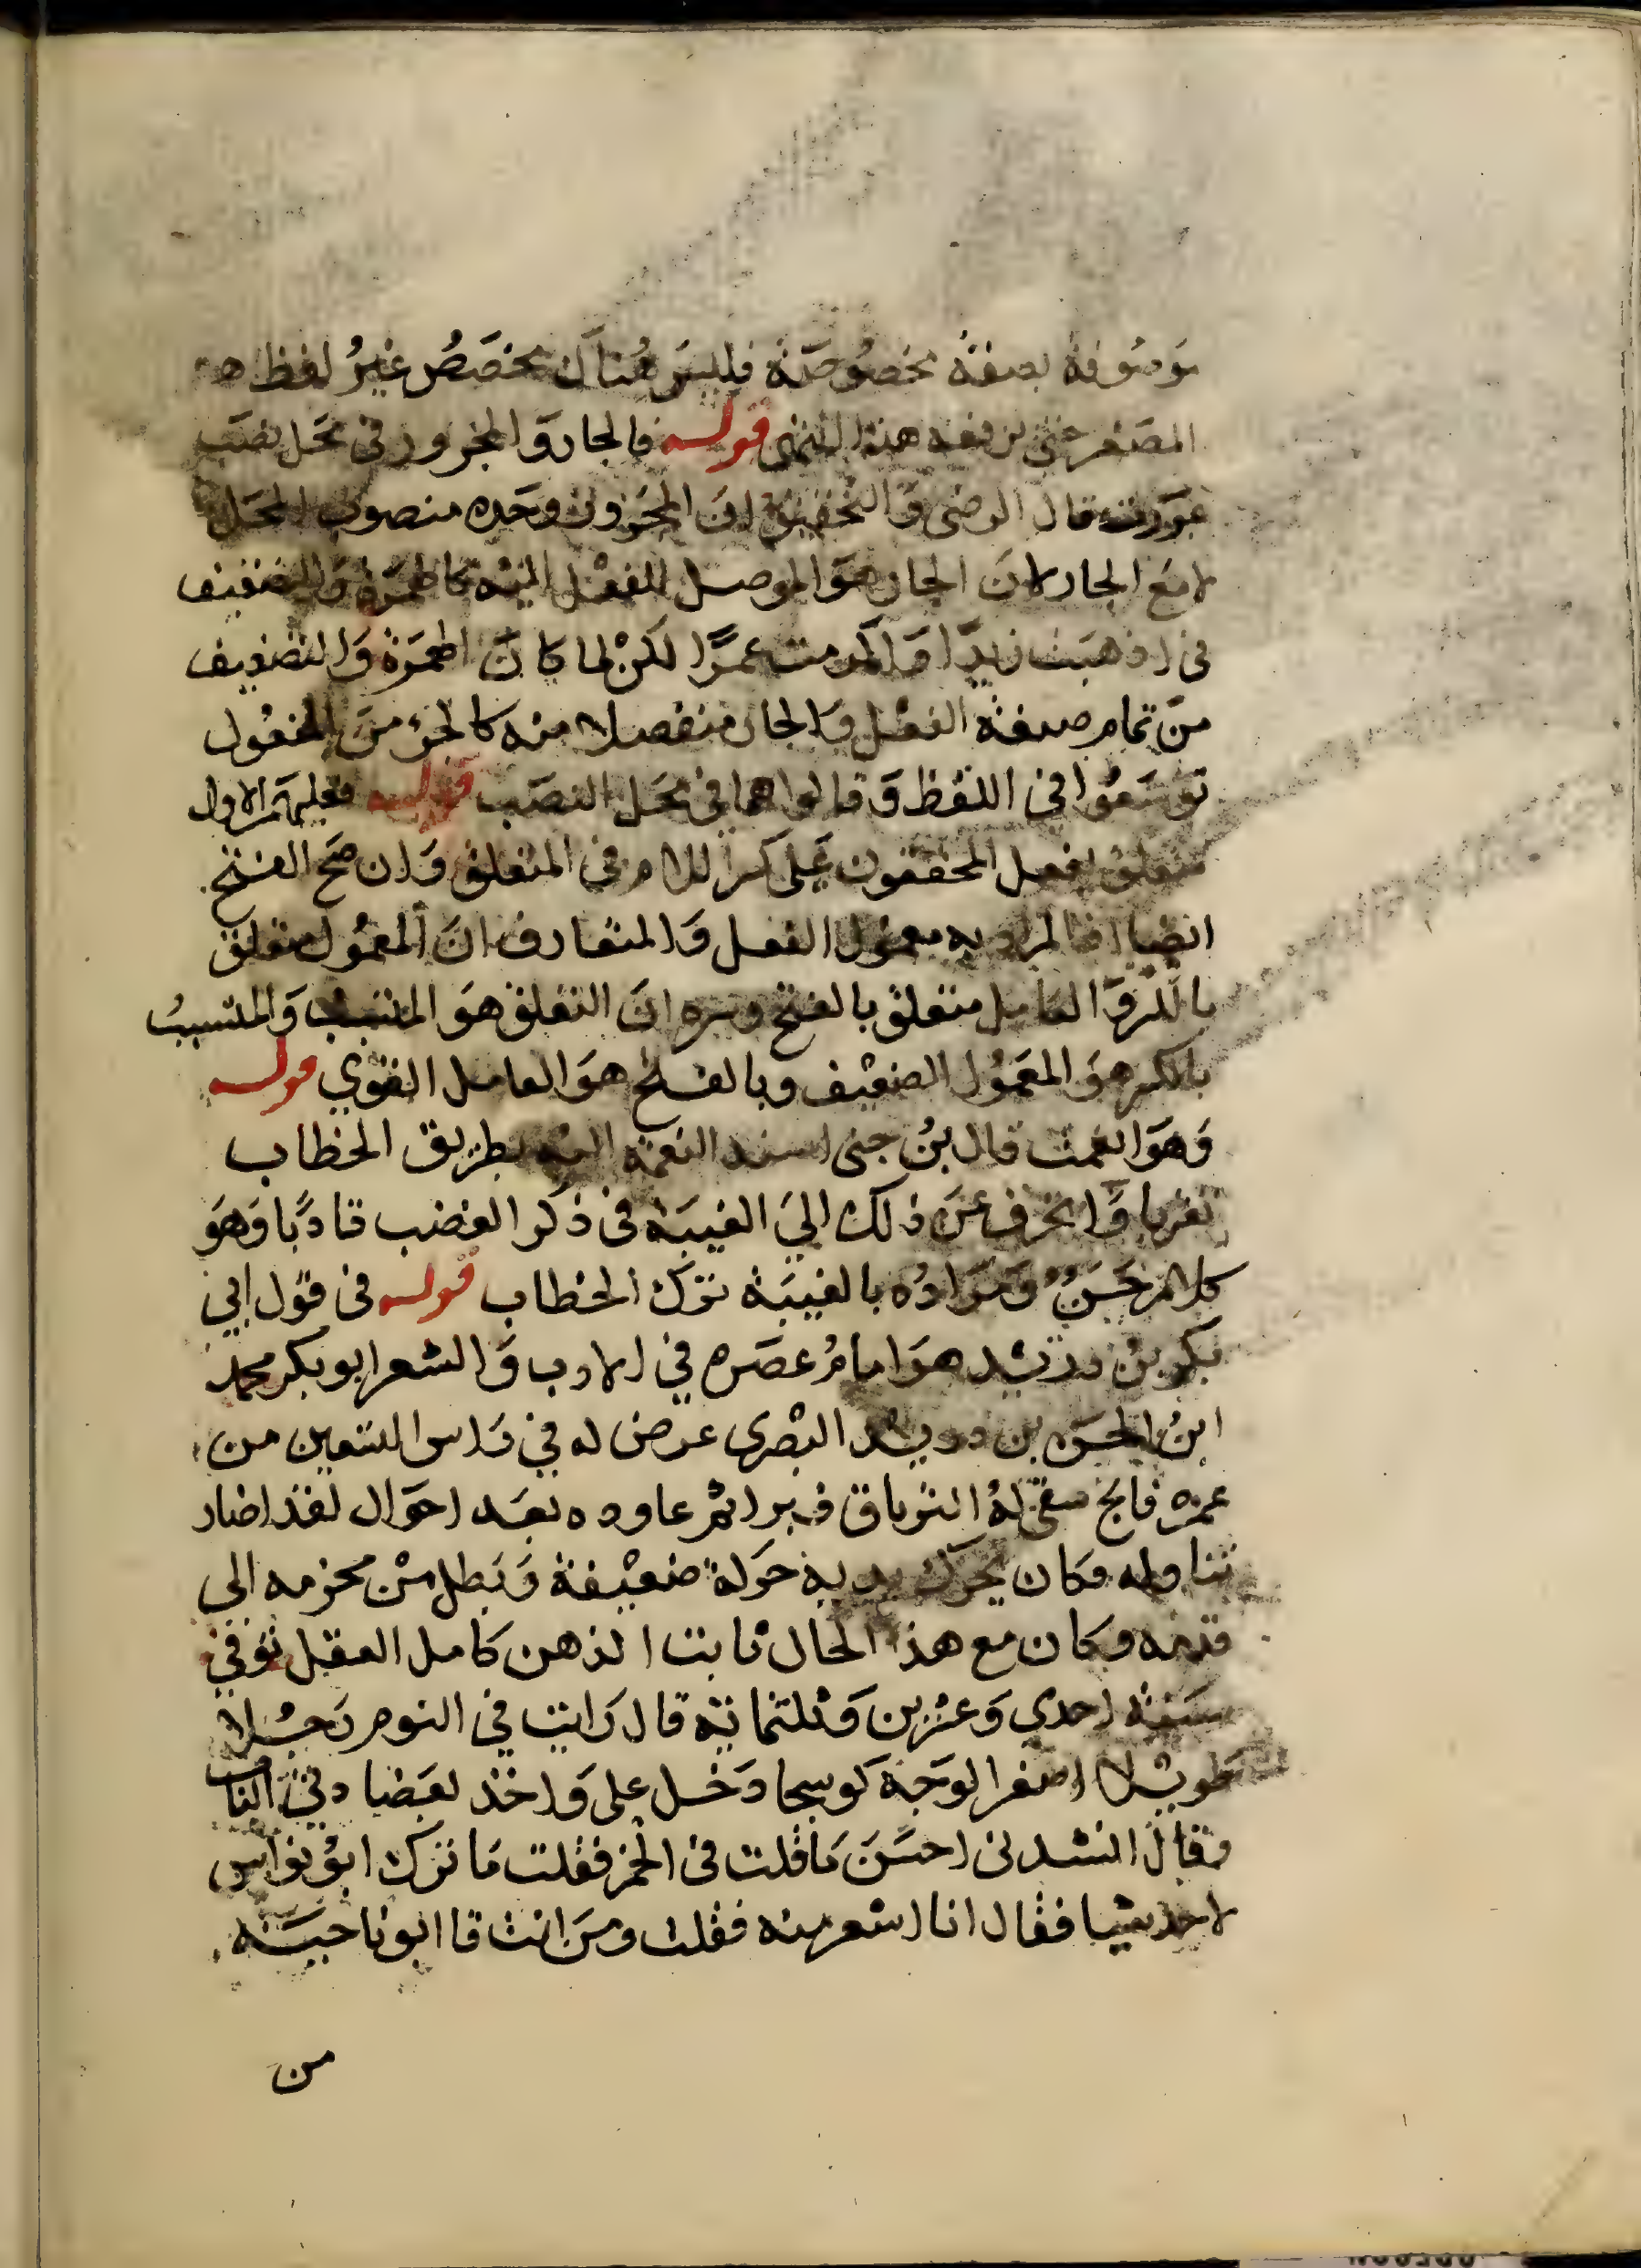 موصوفة بصفة مخصوصة فليس هناك مخصص غير لفظ
المصغر حتى هذا قوله فالجار والمجرور في محل نصب
قال الرضى والتحقيق ان المجرور وحده منصوب المحل
لا مع الجار لان الجار هو الموصل للفعل اليه كالهمزة والتضعيف
في اذهبت زيدا واكرمت عمرا لكن لما كان الهمزة والتضعيف
من تمام صيغة الفعل والجار منفصلا منه كالجزء من المفعول
توسعوا في اللفظ وقالوا هما في محل النصب قوله الاول
متعلق بفعل المحققون على كسر اللام في المتعلق وان صح الفتح
ايضا اذ المراد به معمول الفعل والمتعارف ان المعمول متعلق
بالكسر والعامل متعلق بالفتح وسره ان التعلق هو التسبب والمتسبب
بالكسر هو المعمول الضعيف وبالفتح هو العامل القوي قوله
وهو انعمت قال بن جنى اسند النعمة اليه بطريق الخطاب
تقربا وانحرف عن ذلك الى الغيبة في ذكر الغضب تادبا وهو
كلام حسن ومراده بالغيبة ترك الخطاب قوله في قول ابي
بكر بن دريد هو امام عصره في الادب والشعر ابو بكر محمد
ابن الحسن بن دريد البصرى عرض له في راس التسعين من
عمره فالج سقى له الترياق فبرا ثم عاوده بعد احوال لغذا ضار
تناوله فكان يحرك يديه حركة ضعيفة وبطل من محزمه الى
قدمه وكان مع هذا الحال ثابت الذهن كامل العقل توفي
سنة احدي وعشرين وثلثماية قال رايت في النوم رجلا
طويلا اصفر الوجه كوسجا دخل على واخذ بعضادتي الباب
وقال انشدنى احسن ما قلت في الخمر فقلت ما ترك ابو نواس
لاحد شيا فقال انا اشعر منه فقلت ومن انت قا ابو ناجية
من